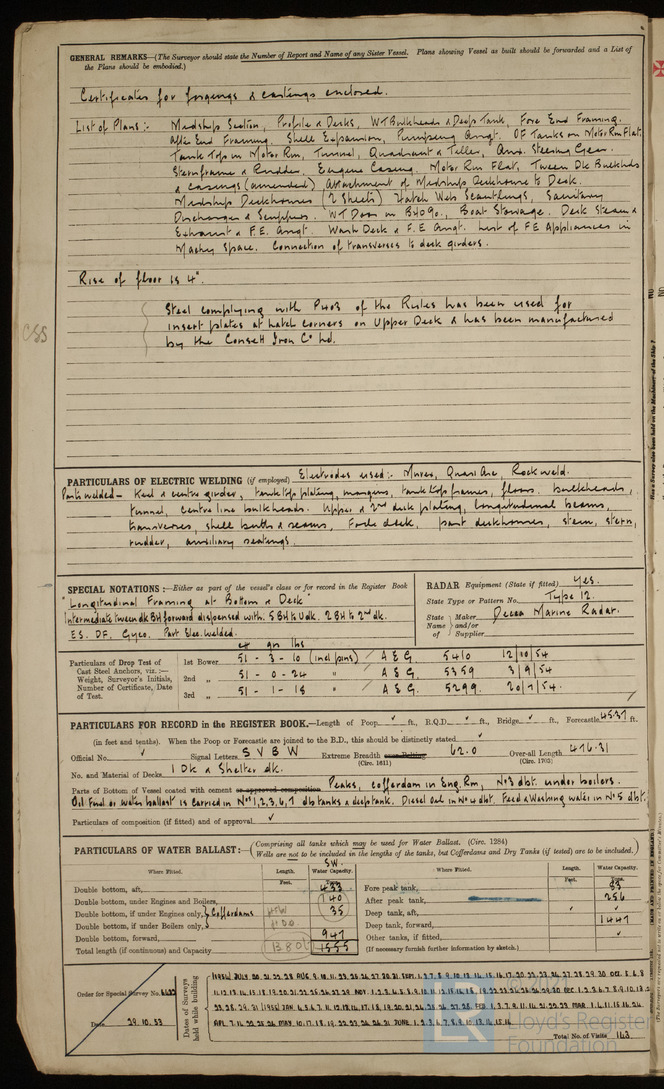 GENERAL REMARKS—(The Surveyor should state the Number of Report and Name of any Sister Vessel. Plans showing Vessel as built should be forwarded and a List of
the Plans should be embodied.)
Certificates for forgings & castings enclosed.
List of Plans:- Midship Section, Profile & Decks, WT Bulkheads & Deep Tank, Fore End Framing.
After End Framing. Shell Expansion, Pumping Arrgt. OF Tanks on Motor Rm Flat.
Tank Top in Motor Rm, Tunnel, Quadrant & Tiller, Aux. Steering Gear.
Sternframe & Rudder, Engine Casing. Motor Rm Flat, Tween Dk Bulkhds
& casings (amended) Attachment of Midship Deckhouse to Deck.
Midship Deckhouses (2 Sheets) Hatch Web Scantlings, Sanitary
Discharges & Scuppers. WT Door in BH 090., Boat Stowage. Deck Steam &
Exhaust & F.E. Arrgt. Wash Deck & F.E Arrgt. List of FE Appliances in
Machy Space. Connection of transverses to deck girders.
Rise of floor is 4".
Steel complying with P403 of the Rules has been used for
insert plates at hatch corners on Upper Deck & has been manufactured
by the Consett Iron Co Ltd.
CSS
PARTICULARS OF ELECTRIC WELDING (if employed) Electrodes used:- Murex, Quasi Arc, Rockweld.
Parts welded— Keel & centre girder, tank top plating, margins, tank top frames, floors, bulkheads,
tunnel, centre line bulkheads. Upper & 2nd deck plating, longitudinal beams,
transverses, shell butts & seams, Fcsle deck, part deckhouses, stem, stern,
rudder, auxiliary seatings.
SPECIAL NOTATIONS:—Either as part of the vessel's class or for record in the Register Book
"Longitudinal Framing at Bottom & Deck"
Intermediate tween dk BH forward dispensed with. 5 BH to U dk. 2 BH to 2nd dk.
E.S. DF. Gyco. Part Elec. Welded.
RADAR Equipment (State if fitted) Yes.
State Type or Pattern No. Type 12.
State Name of Maker and/or Supplier Decca Marine Radar.
Particulars of Drop Test of Cast Steel Anchors, viz.:— Weight, Surveyor's Initials, Number of Certificate, Date of Test.
cwt qrs lbs
1st Bower 51 - 3 - 10 (incl pins) A E G. 5410 12/10/54
2nd „ 51 - 0 - 24 „ A E G. 5359 3/9/54
3rd „ 51 - 1 - 18 „ A E G. 5299. 20/7/54.
PARTICULARS FOR RECORD in the REGISTER BOOK.—Length of Poop ✓ ft., R.Q.D. ✓ ft., Bridge ✓ ft., Forecastle 45.37 ft.
(in feet and tenths). When the Poop or Forecastle are joined to the B.D., this should be distinctly stated ✓
Official No. ✓ Signal Letters S V B W Extreme Breadth (Circ. 1611) 62.0 Over-all Length (Circ. 1703) 476.31
No. and Material of Decks 1 Dk & Shelter dk.
Parts of Bottom of Vessel coated with cement or approved composition Peaks, cofferdam in Eng. Rm, No 3 dbt. under boilers.
Oil Fuel or water ballast is carried in Nos 1,2,3,6,7 db tanks & deep tank. Diesel Oil in No 4 dbt. Feed & Washing water in No 5 dbt.
Particulars of composition (if fitted) and of approval ✓
PARTICULARS OF WATER BALLAST:— (Comprising all tanks which may be used for Water Ballast. (Circ. 1284)
Wells are not to be included in the lengths of the tanks, but Cofferdams and Dry Tanks (if tested) are to be included.)
Where Fitted. Length. Feet. Water Capacity. Tons. Where Fitted. Length. Feet. Water Capacity. Tons.
S.W.
Double bottom, aft, 433 Fore peak tank, 83
Double bottom, under Engines and Boilers, 140 After peak tank, 256
Double bottom, if under Engines only, Cofferdams 35 Deep tank, aft, ✓ ✓
Double bottom, if under Boilers only, Deep tank, forward, 1447
Double bottom, forward, 947 Other tanks, if fitted, ✓
Total length (if continuous) and Capacity 1380 1555 (If necessary furnish further information by sketch.)
Order for Special Survey No. 6122
Date 29.10.53
Dates of Surveys held while building
Total No. of Visits 143.
Lloyd's Register
Foundation